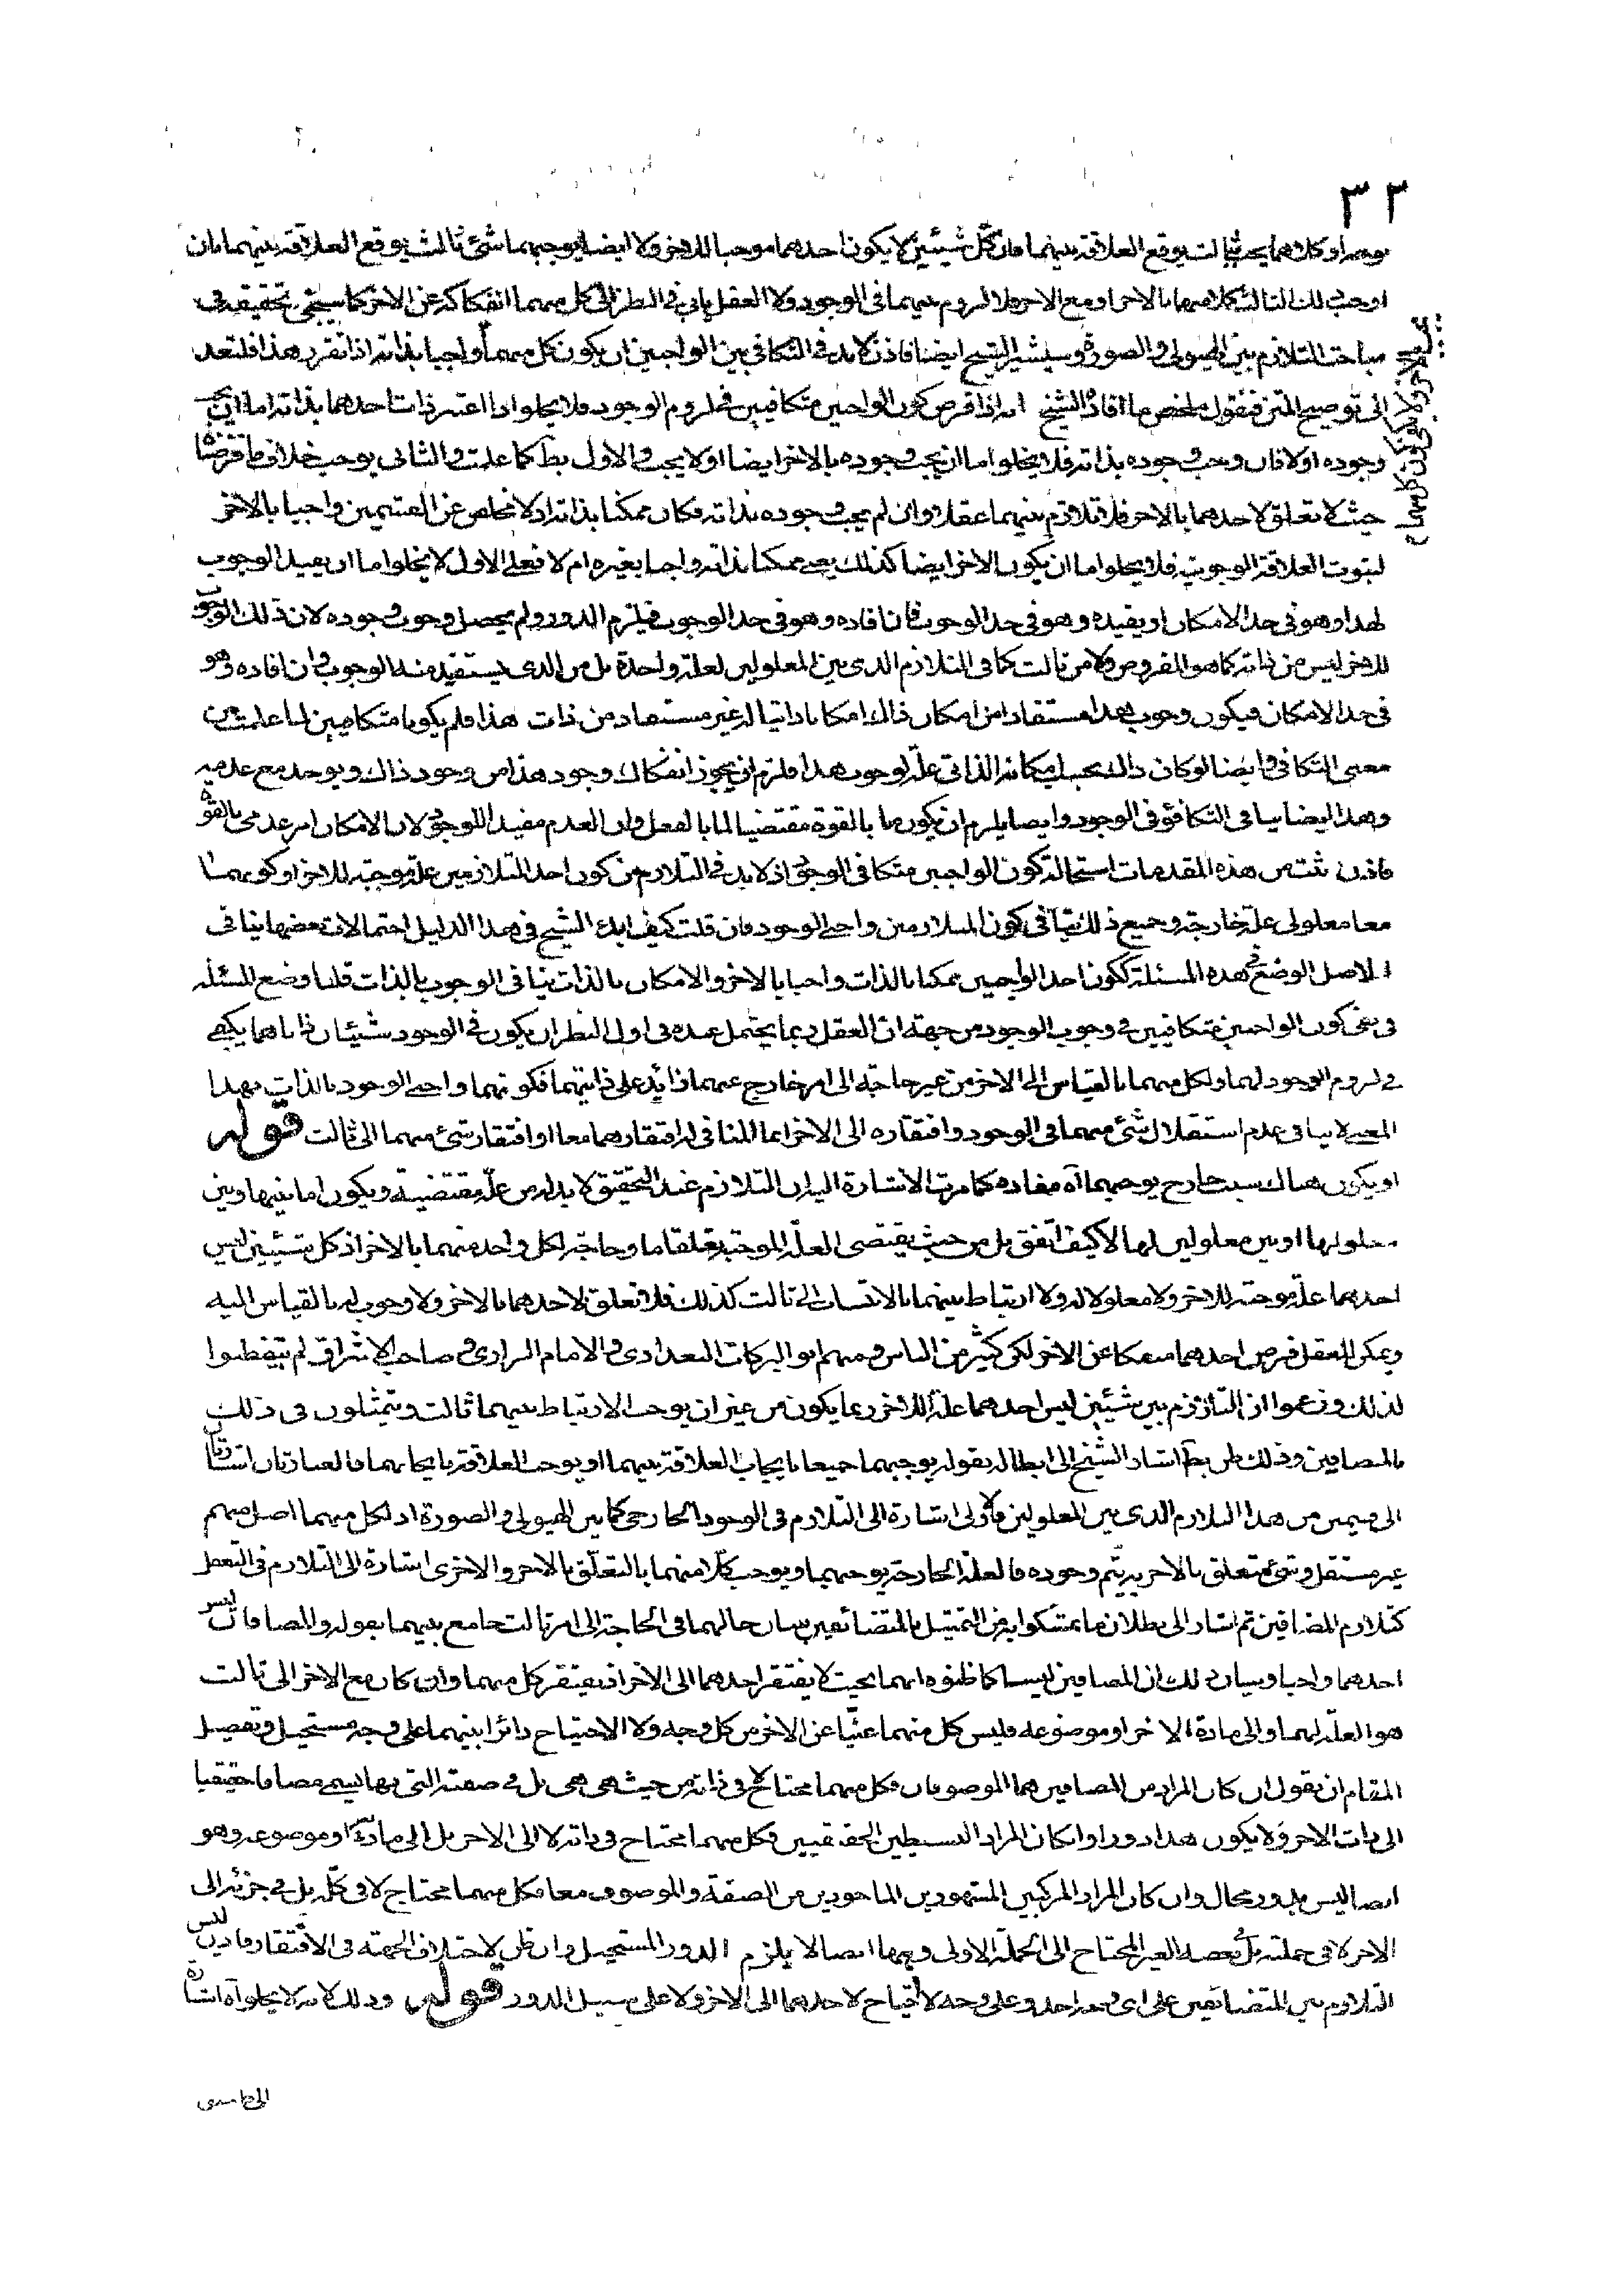 ٣٢
يوجد او كلاهما يجب بثالث يوقع العلاقة بينهما فان كل شيئين لا يكون احدهما موجبا للاخر ولا ايضا يوجبهما شئ ثالث يوقع العلاقة بينهما بان
اوجب ذلك الثالث كلا منهما بالاخر او مع الاخر فلا لزوم بينهما فى الوجود ولا العقل يابى فى النظر الى كل منهما انفكاكه عن الاخر كما سيجئ تحقيقه فى
مباحث التلازم بين الهيولى والصورة وسيشير الشيخ ايضا فاذن لا بد فى التكافى بين الواجبين ان يكون كل منهما واجبا بذاته اذا تقرر هذا فلنعد
الى توضيح المتن فنقول ملخص ما افاده الشيخ انه اذا فرض كون الواجبين متكافيين فى لزوم الوجود فلا يخلو اذا اعتبر ذات احدهما بذاته اما ان يجب
وجوده او لا فان وجب وجوده بذاته فلا يخلو اما ان يجب وجوده بالاخر ايضا او لا يجب والاول بط كما علمت والثانى يوجب خلاف ما فرضنا
حيث لا تعلق لاحدهما بالاخر فلا تلازم بينهما عقلا وان لم يجب وجوده بذاته فكان ممكنا بذاته اذ لا مخلص عن القسمين واجبا بالاخر
لثبوت العلاقة الوجوبية فلا يخلو اما ان يكون الاخر ايضا كذلك يعنى ممكنا بذاته واجبا بغيره ام لا فعلى الاول لا يخلو اما ان يفيد الوجوب
لهذا وهو فى حد الامكان او يفيده وهو فى حد الوجوب فان افاده وهو فى حد الوجوب فيلزم الدور ولم يحصل وجوب وجوده لان ذلك الوجوب
للاخر ليس من ذاته كما هو المفروض ولا من ثالث كما فى التلازم الذى بين المعلولين لعلة واحدة بل من الذى يستفيد منه الوجوب وان افاده وهو
فى حد الامكان فيكون وجوب هذا مستفادا من امكان ذاك امكانا ذاتيا له غير مستفاد من ذات هذا فلم يكونا متكافيين لما علمت من
معنى التكافى وايضا لو كان ذاك بحسب امكانه الذاتى علة لوجوب هذا فلزم ان يجوز انفكاك وجود هذا من وجود ذاك ويوجد مع عدميه
وهذا ايضا ينافى التكافؤ فى الوجود وايضا يلزم ان يكون ما بالقوة مقتضيا لما بالفعل وان العدم مفيد اللوجود لان الامكان امر عدمى بالقوة
فاذن ثبت من هذه المقدمات استحالة كون الواجبين متكافى الوجود اذ لا بد فى التلازم من كون احد المتلازمين علة موجبة للاخر او كونهما
معا معلولى علة خارجة وجميع ذلك ينافى كون المتلازمين واجبى الوجود فان قلت كيف ابدع الشيخ فى هذا الدليل احتمالات بعضها ينافى
الاصل الوضع فى هذه المسئلة ككون احد الواجبين ممكنا بالذات واجبا بالاخر والامكان بالذات ينافى الوجوب بالذات قلنا وضع المسئلة
فى نفى كون الواجبين متكافيين فى وجوب الوجود من جهة ان العقل ربما يحتمل عنده فى اول النظر ان يكون فى الوجود شيئان ذاتاهما يكفى
فى لزوم الوجود لهما ولكل منهما بالقياس الى الاخر من غير حاجة الى امر خارج عنهما زائد على ذاتيهما فكونهما واجبى الوجود بالذات بهذا
المعنى لا ينافى عدم استقلال شئ منهما فى الوجود وافتقاره الى الاخر انما المنافى له افتقارهما معا او افتقار شئ منهما الى ثالث قوله
او يكون هناك سبب خارج يوجبهما آه مفاده كما مرت الاشارة اليه ان التلازم عند التحقيق لا بد له من علة مقتضية ويكون اما بينها وبين
معلولها او بين معلولين لها لا كيف اتفق بل من حيث يقتضى العلة الموجبة تعلقا ما وحاجة لكل واحد منهما بالاخر اذ كل شيئين ليس
احدهما علة موجبة للاخر ولا معلولا له ولا ارتباط بينهما بالانتساب الى ثالث كذلك فلا تعلق لاحدهما بالاخر ولا وجوب له بالقياس اليه
ويمكن للعقل فرض احدهما منفكا عن الاخر لكن كثير من الناس ومنهم ابو البركات البغدادى والامام الرازى وصاحب الاشراق لم يتفطنوا
لذلك وزعموا ان التلازم بين شيئين ليس احدهما علة للاخر ربما يكون من غير ان يوجب الارتباط بينهما ثالث ويتمثلون فى ذلك
بالمضافين وذلك ظن بط اشار الشيخ الى ابطاله بقوله يوجبهما جميعا بايجاب العلاقة بينهما او يوجب العلاقة بايجابهما فالعبارتان اشارتان
الى ضربين من هذا التلازم الذى بين المعلولين فالاولى اشارة الى التلازم فى الوجود الخارجى كما بين الهيولى والصورة اذ لكل منهما اصل منهم
غير مستقل وشئ متعلق بالاخر به يتم وجوده فالعلة الخارجة يوجبهما ويوجب كلا منهما بالتعلق بالاخر والاخرى اشارة الى التلازم فى التعقل
كتلازم المضافين ثم اشار الى بطلان ما تمسكوا به من التمثيل بالمتضائفين ببيان حالهما فى الحاجة الى امر ثالث جامع بينهما بقوله والمضافان ليس
احدهما واجبا وبيان ذلك ان المضافين ليسا كما ظنوه انهما بحيث لا يفتقر احدهما الى الاخر اذ يفتقر كل منهما وان كان مع الاخر الى ثالث
هو العلة لهما والى مادة الاخر او موضوعه فليس كل منهما غنيا عن الاخر من كل وجه ولا الاحتياج دائرا بينهما على وجه مستحيل وتفصيل
المقام ان نقول ان كان المراد من المضافين هما الموصوفان فكل منهما محتاج لا فى ذاته من حيث هى هى بل فى صفته التى بها يسمى مضافا حقيقيا
الى ذات الاخر ولا يكون هذا دورا وان كان المراد البسيطين الحقيقيين فكل منهما محتاج فى ذاته لا الى الاخر بل الى مادته او موضوعه وهو
ايضا ليس بدور محال وان كان المراد المركبين المشهورين الماخوذين من الصفة والموصوف معا فكل منهما محتاج لا فى كله بل فى جزئه الى
الاخر لا فى جملته بل بعضه الغير المحتاج الى الجملة الاولى وبهما ايضا لا يلزم الدور المستحيل وان ظن لاختلاف الجهة فى الافتقار فاذن ليس
التلازم بين المتضائفين على اى وجه احد وعلى وجه لا احتياج لاحدهما الى الاخر ولا على سبيل الدور قوله وذلك لانه لا يخلو آه اشارة